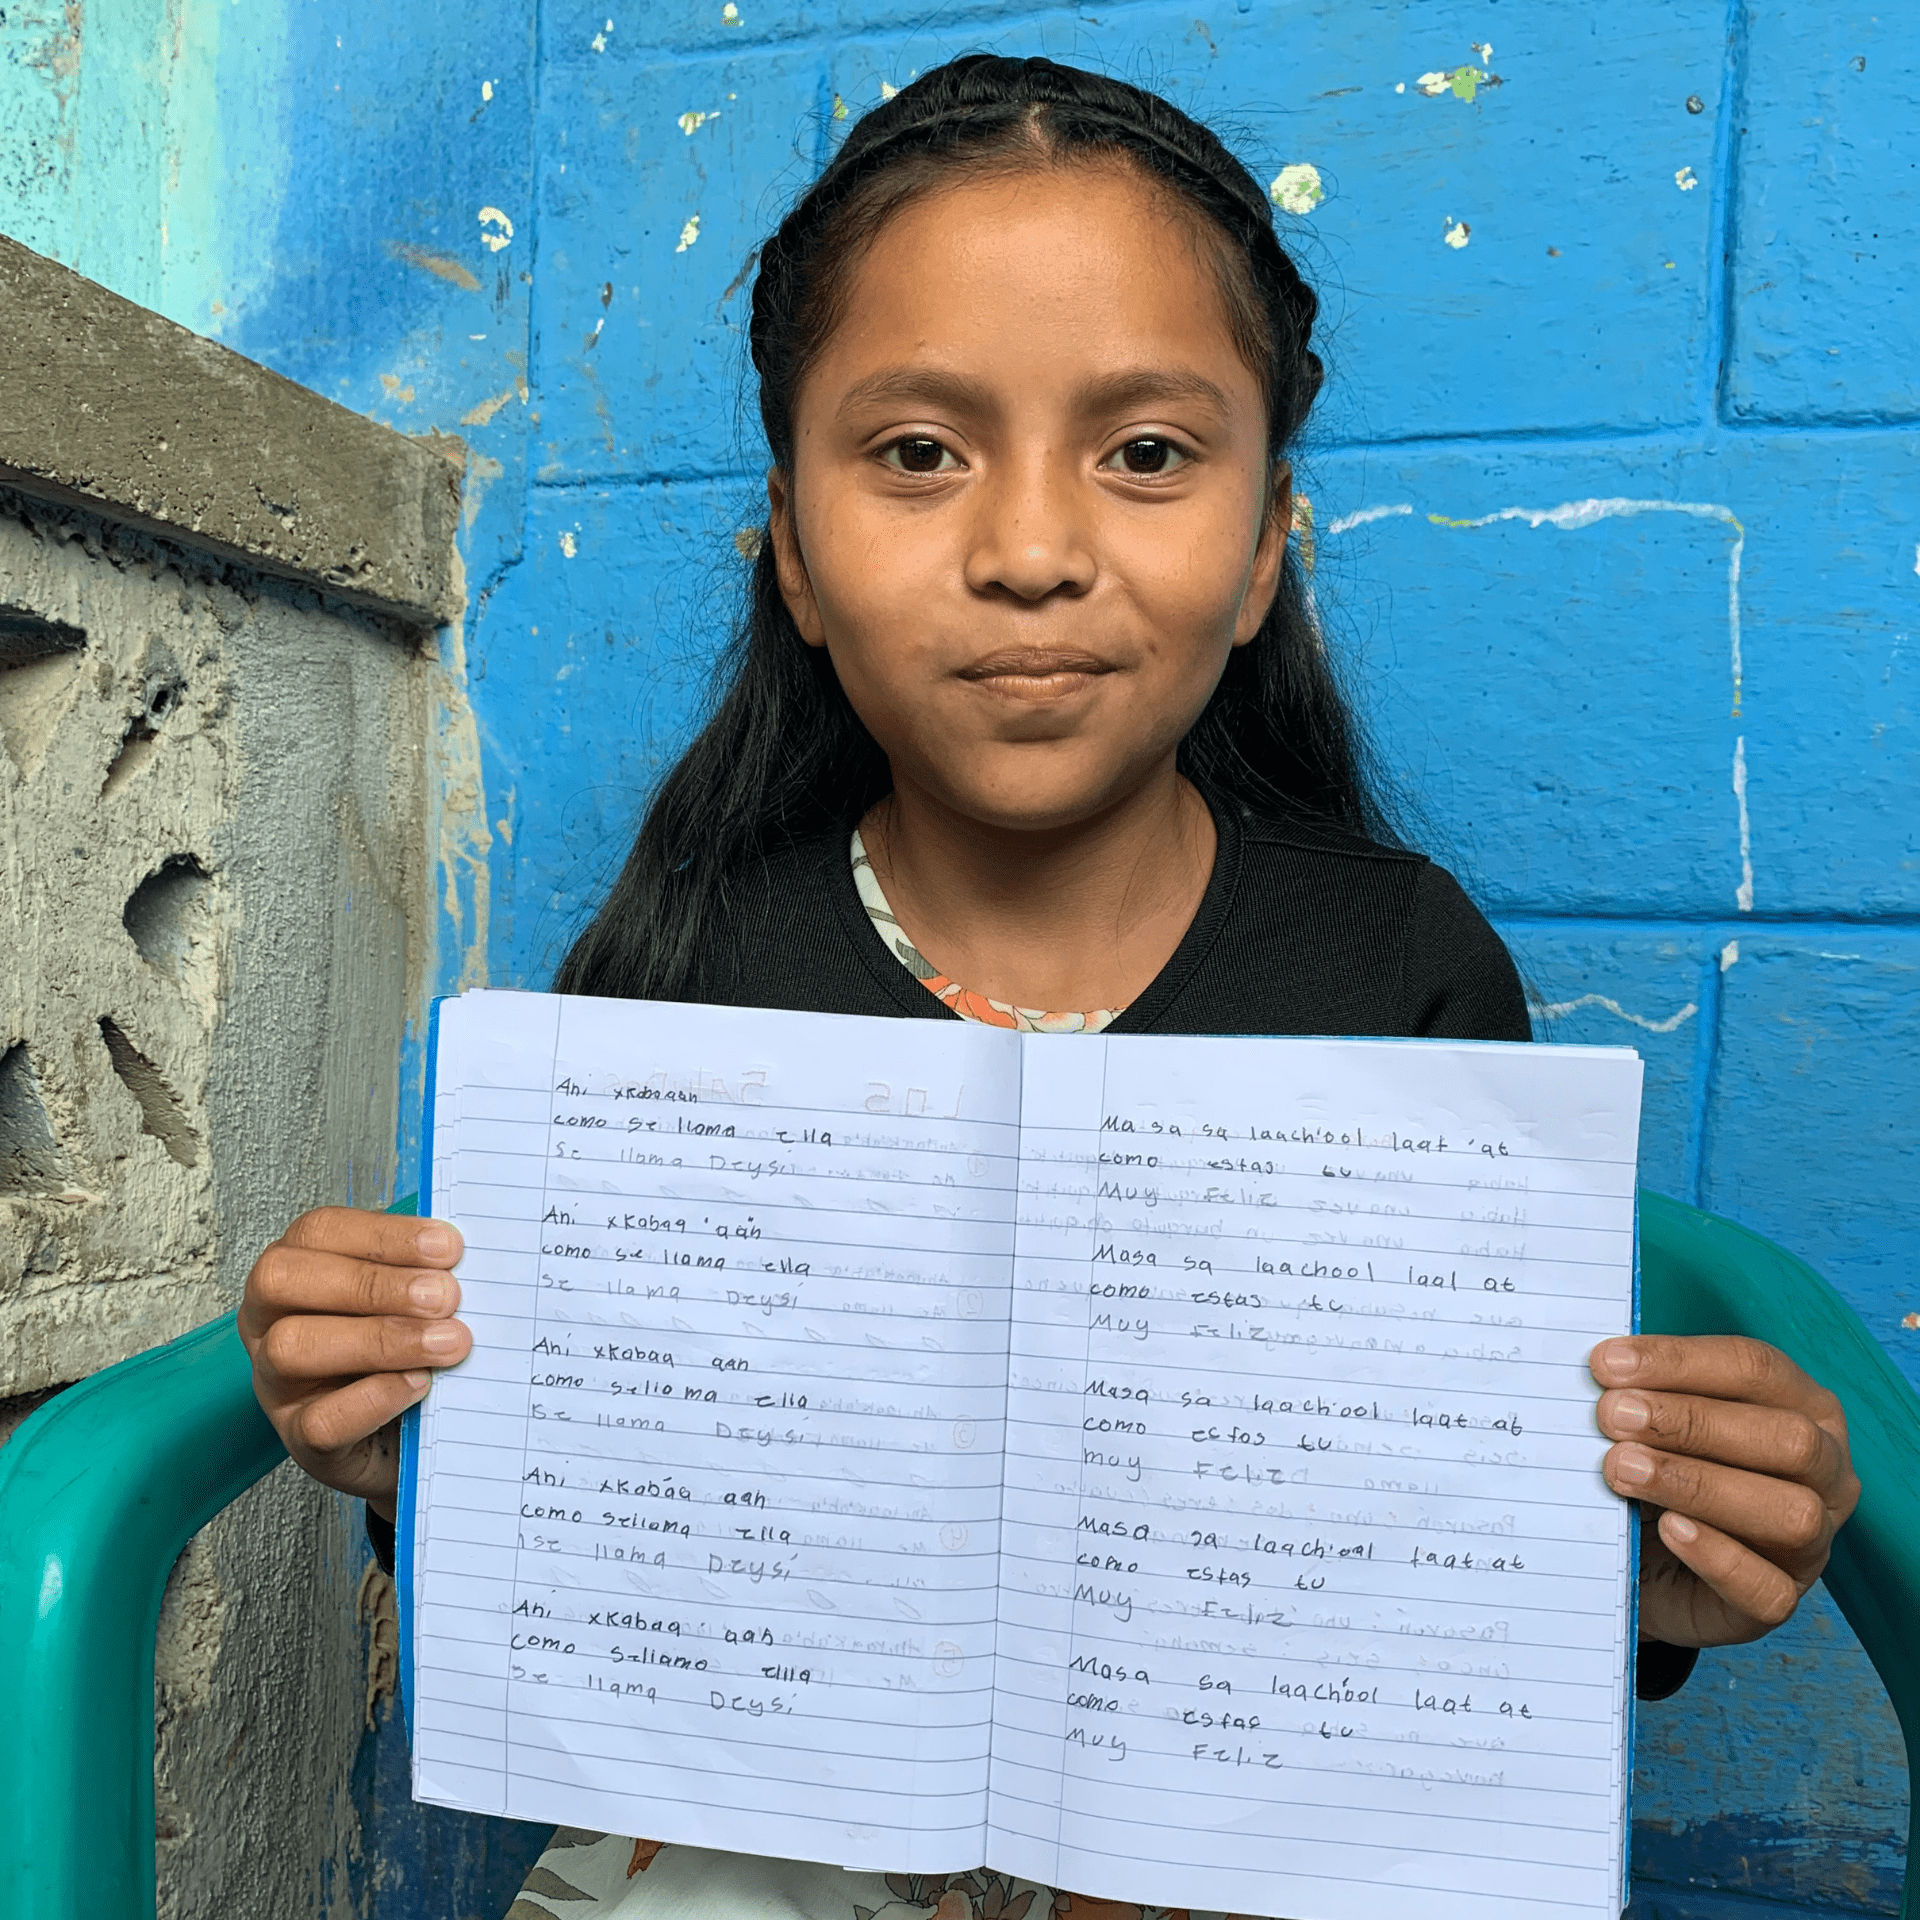 Ani xkabaaan
como se llama ella
Se llama Deysi
Ani xkabaq 'aan
como se llama ella
Se llama Deysi
Ani xkabaq aan
como sella ma ella
Se llama Deysi
Ani xkabáq aan
como sellama ella
Se llama Deysi
Ani xkabaq ' aan
como sellamo ella
Se llama Deysi
Ma sa sa laach'ool laat 'at
como estas tu
Muy Feliz
Masa sa laachool laal at
como estas tu
Muy Feliz
Masa sa laach'ool laat at
como estas tu
muy Feliz
Masa sa laach'ool laat at
como estas tu
Muy Feliz
Masa sa laach'ool laat at
como estas tu
Muy Feliz